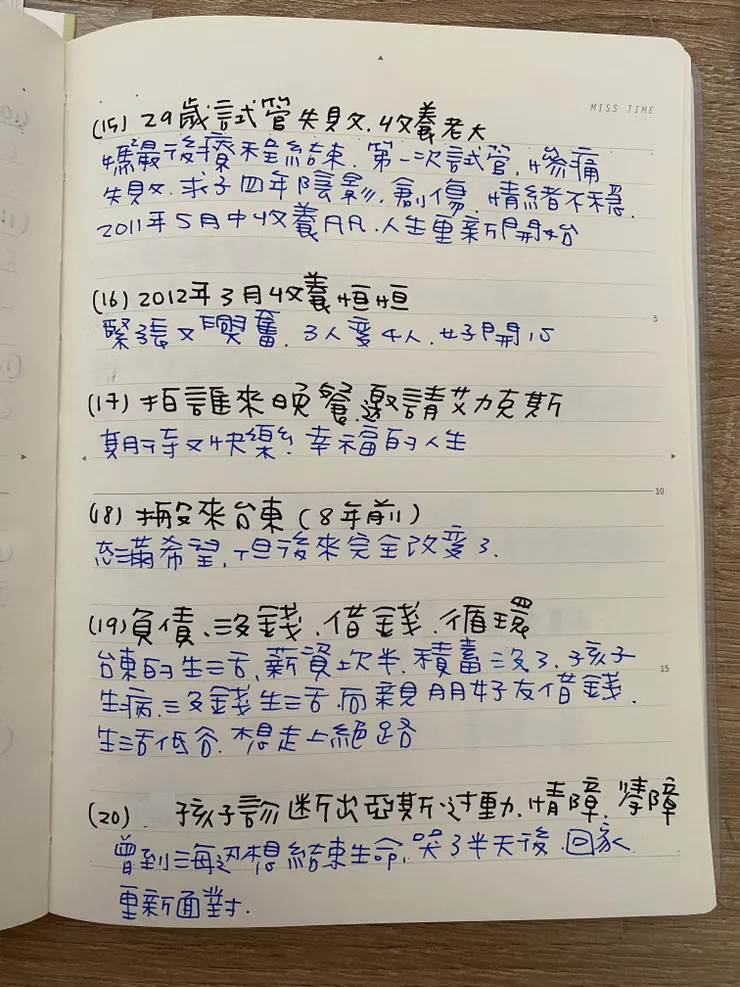 MISS TIME
(15) 29歲試管失敗.收養老大
博最後療程結束.第一次試管,慘痛
失敗.求子四年陰影.創傷.情緒不穩.
2011年5月中收養凡凡.人生重新開始
(16) 2012年3月收養恒恒
緊張又興奮.3人變4人.好開心
5
(17) 拍誰來晚餐.邀請艾力克斯
期待又快樂!幸福的人生
10
(18) 搬來台東(8年前)
充滿希望,但後來完全改變了.
(19) 負債、沒錢.借錢.循環
台東的生活,薪資砍半.積蓄沒了.孩子
15
生病.沒錢生活.向親朋好友借錢.
生活低谷.想走上絕路
(20) 孩子診斷出亞斯.過動.情障.學障
曾到海邊想結束生命.哭了半天後.回家
重新面對.